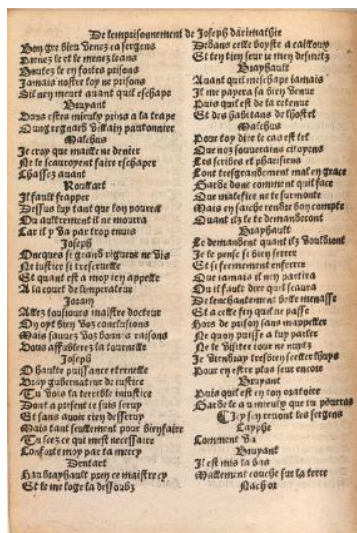 De lemprisonnement de Joseph darimathie
Bon gre bien venez ca sergens
Prenez le et le menez leans
Boutez le en fortes prisons
Jamais nostre loy ne prisons
Sil nen meurt auant quil eschape
Bruyant
Vous estes mieulx prins a la trape
Qung regnard villain paultonnier
Malchus
Je croy que maille ne denier
Ne le scauroyent faire eschaper
Chassez auant
Roullart
Il fault frapper
Dessus luy tant que lon pourra
Ou aultrement il ne mourra
Car il y va par trop enuis
Joseph
Oncques si grand rigueur ne vis
Ne iustice si trescruelle
Et quant est a moy ien appelle
A la court de lempereur
Joram
Allez tousiours maistre docteur
On oyt bien voz conclusions
Mais sauuez voz bonnes raisons
Vous affublerez la tournelle
Joseph
O haulte puissance eternelle
Vray gubernateur de iustice
Tu vois la terrible iniustice
Dont a present ie suis seruy
Et sans auoir rien desseruy
Mais tant seullement pour bienfaire
Tu scez ce qui mest necessaire
Conforte moy par ta mercy
Dentart
Hau brayhault pren ce maistre cy
Et le me loge la dessoubz
Dedans celle boyste a cailloux
Et ten tien seur ie men desmetz
Brayhault
Auant quil meschape iamais
Il me payera sa bien venue
Puis quil est de la retenue
Et des habitans de lhostel
Malchus
Pour toy dire le cas est tel
Que noz souuerains citoyens
Les scribes et pharisiens
Lont tresgrandement mal en grace
Garde donc comment quil face
Que malefice ne te surmonte
Mais en saiche rendre bon compte
Quant ilz le te demanderont
Brayhault
Le demandent quant ilz vouldront
Je le pense si bien serrer
Et si fermement enserrer
Que iamais il nen partira
Ou il fault dire quil scaura
De lenchantement belle menasse
Et a celle fin quil ne passe
Hors de prison sans mappeller
Ne quon puisse a luy parler
Ne le visiter iour ne nuyt
Je viendray tresbien seeller lhuys
Pour en estre plus seur encore
Bruyant
Puis quil est en ton oratoire
Garde le au mieulx que tu pourras
Icy sen reuont les sergens
Cayphe
Comment va
Bruyant
Il est mis la bas
Mallement couche sur la terre
Nachor